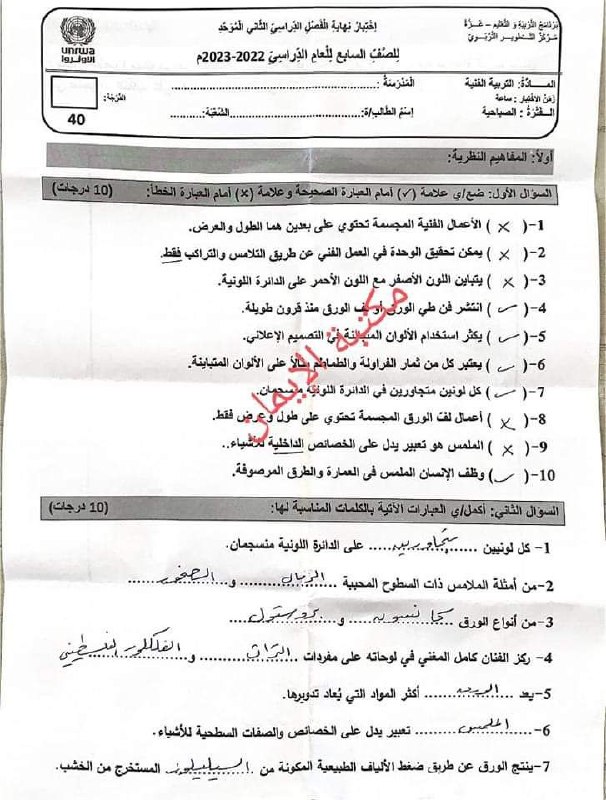 برنامج التربية و التعليم – غـزة
مركز التطوير التربوي
إختبار نهاية الفصل الدراسي الثاني الموحد
للصف السابع للعام الدراسي 2022-2023م
unrwa
الأونروا
المادة: التربية الفنية
زمن الاختبار: ساعة
الفترة: الصباحية
المدرسة:
إسم الطالب/ة: الشعبة:
الدرجة:
40
أولاً: المفاهيم النظرية:
السؤال الأول: ضع/ي علامة (✓) أمام العبارة الصحيحة وعلامة (×) أمام العبارة الخطأ: (10 درجات)
1-( × ) الأعمال الفنية المجسمة تحتوي على بعدين هما الطول والعرض.
2-( × ) يمكن تحقيق الوحدة في العمل الفني عن طريق التلامس والتراكب فقط.
3-( × ) يتباين اللون الأصفر مع اللون الأحمر على الدائرة اللونية.
4-( ✓ ) انتشر فن طي الورق أو لف الورق منذ قرون طويلة.
5-( ✓ ) يكثر استخدام الألوان المتباينة في التصميم الإعلاني.
6-( ✓ ) يعتبر كل من ثمار الفراولة والطماطم مثالاً على الألوان المتباينة.
7-( ✓ ) كل لونين متجاورين في الدائرة اللونية منسجمان.
8-( × ) أعمال لف الورق المجسمة تحتوي على طول وعرض فقط.
9-( × ) الملمس هو تعبير يدل على الخصائص الداخلية للأشياء..
10-( ✓ ) وظف الإنسان الملمس في العمارة والطرق المرصوفة.
مكتبة الايمان
السؤال الثاني: أكمل/ي العبارات الآتية بالكلمات المناسبة لها: (10 درجات)
1- كل لونيين متجاورين على الدائرة اللونية منسجمان.
2-من أمثلة الملامس ذات السطوح المحببة الرمال و الصخور
3-من أنواع الورق كانسون و بروستول
4- ركز الفنان كامل المغني في لوحاته على مفردات التراث و الفلكلور الفلسطيني
5-يعد الورق أكثر المواد التي يُعاد تدويرها.
6- الملمس تعبير يدل على الخصائص والصفات السطحية للأشياء.
7-ينتج الورق عن طريق ضغط الألياف الطبيعية المكونة من السيليلوز المستخرج من الخشب.